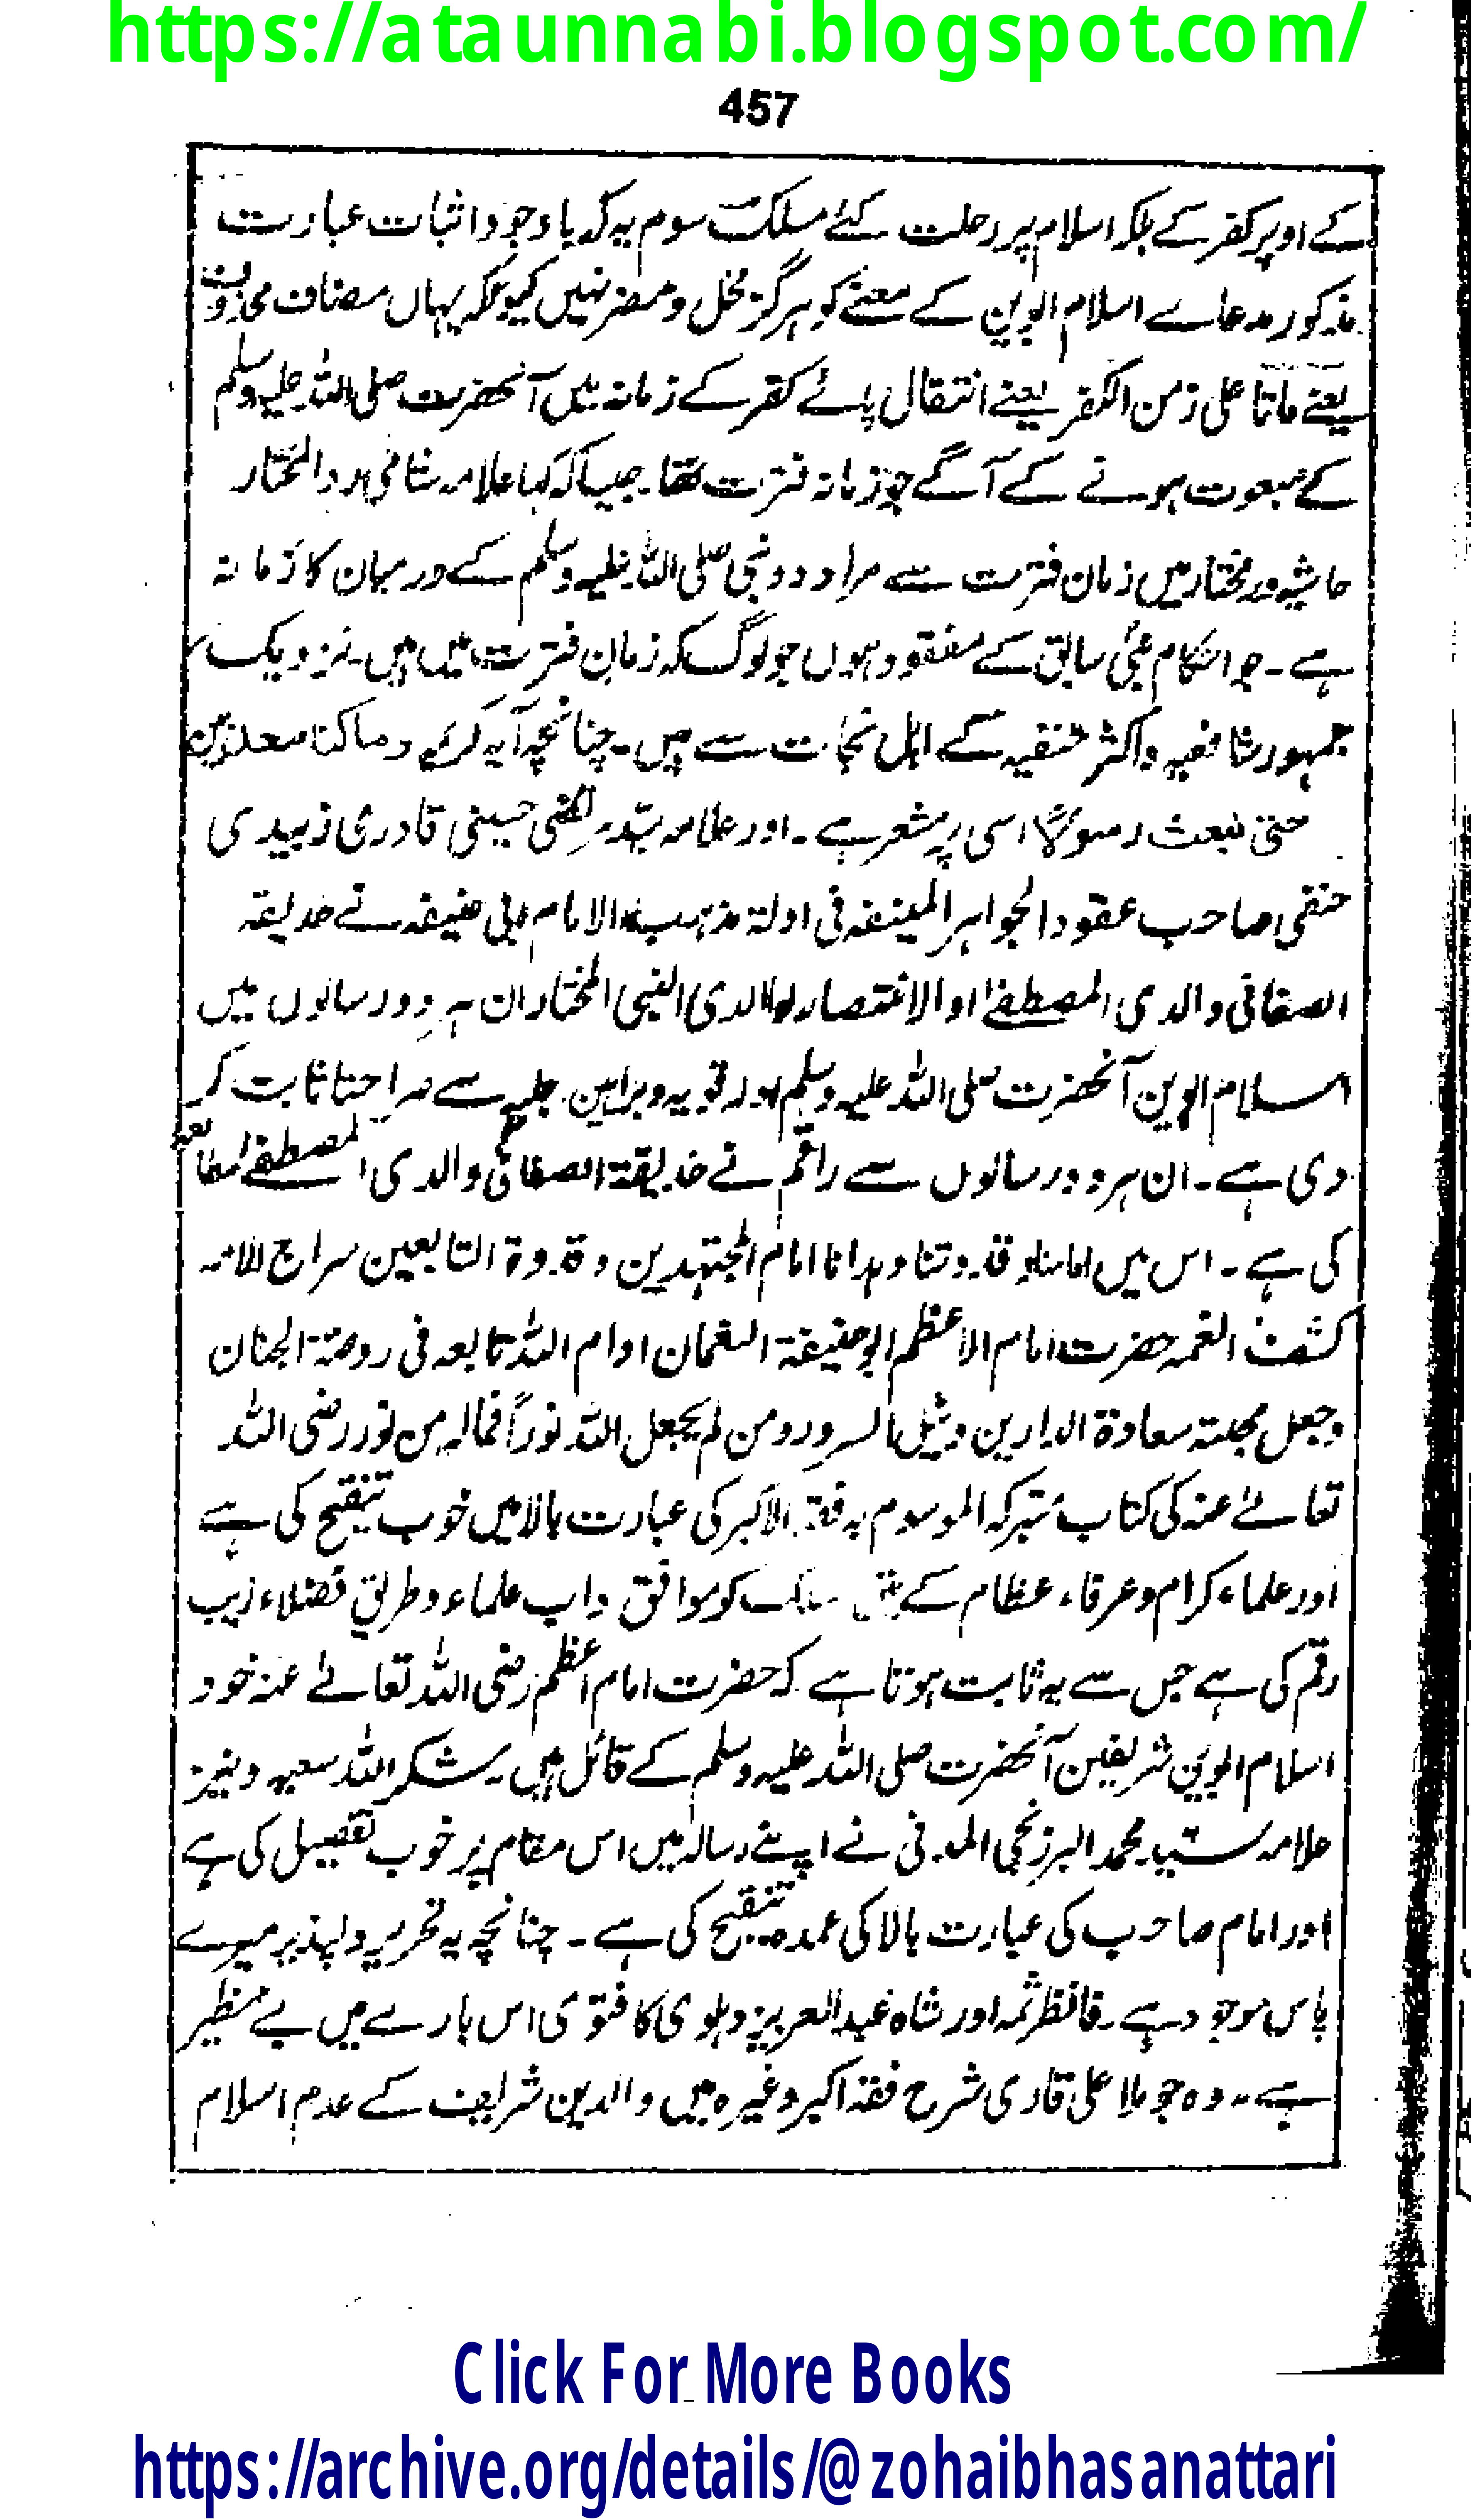 https://ataunnabi.blogspot.com/
457
کے اوپر کفر کے بلکہ اسلام پر رحلت کئے مسلک سوم یہ کہ باوجود اثبات عبارت
مذکور مدعاے اسلام ابوین کے معنے کو ہرگز مخل و مضر نہیں کیونکہ یہاں مضاف محذوف
یعنے ماتا علی زمن الکفر یعنے انتقال پائے کفر کے زمانہ میں آنحضرت صلی اللہ علیہ وسلم
کے مبعوث ہونے کے آگے جو زمانہ فترت تھا۔ جیسا کہ کہا علامہ شامی رد المختار
حاشیہ در مختار میں زمان فترت سے مراد دو نبی صلی اللہ علیہ وسلم کے درمیان کا زمانہ
ہے۔ جو احکام نبیٔ سابق کے مفقود ہوں جو لوگ کہ زمان فترت میں ہیں۔ نزدیک
جمہور شافعیہ و اکثر حنفیہ کے اہل نجات سے ہیں۔ چنانچہ آیہ کریمہ وماکنا معذبین
حتی نبعث رسولاً اسی پر مشعر ہے۔ اور علامہ سید مرتضی حسینی قادری زبیدی
حنفی صاحب عقود الجواہر المنیفہ فی ادلۃ مذہب الامام ابی حنیفہ نے حدیقہ
الصفا فی والدی المصطفےٰ اوالانتصار لوالدی النبی المختار ان ہر دو رسالوں میں
اسلام ابوین آنحضرت صلی اللہ علیہ وسلم قویہ و براہین جلیہ سے صراحتا ثابت کر
دی ہے۔ ان ہر دو رسالوں سے راقم نے حدیقۃ الصفا فی والدی المصطفےٰ
کی ہے۔ اس میں امامنا و قدوتنا و ہدانا امام المجتہدین و قدوۃ التابعین سراج الامہ
کشف الغمہ حضرت امام الاعظم ابوحنیفۃ النعمان ادام اللہ تابعہ فی روضۃ الجنان
وجعل سعادۃ الدارین السرور ومن لم یجعل اللہ نوراً فمالہ من نور رضی اللہ
تعالےٰ عنہ کی کتاب متبرکہ الموسوم بہ فقہ الاکبر کی عبارت بالا میں خوب تنقیح کی ہے
اور علماء کرام و عرفاء عظام کے مسلک کو موافق داب علماء و طریق فضلاء زیب
رقم کی ہے جس سے یہ ثابت ہوتا ہے کہ حضرت امام اعظم رضی اللہ تعالےٰ عنہ خود
اسلام ابوین شریفین آنحضرت صلی اللہ علیہ وسلم کے قائل ہیں۔ شکر اللہ سعیہ ونیز
علامہ سید محمد البرزنجی المدنی نے اپنے رسالہ میں اس مقام پر خوب تفصیل کی ہے
اور امام صاحب کی عبارت بالا کی عمدہ تنقیح کی ہے۔ چنانچہ یہ تحریر دلپذیر میرے
پاس موجود ہے۔ فانظر ثمہ اور شاہ عبدالعزیز دہلوی کا فتوی اس بارے میں بے نظیر
ہے۔ وہ جو ملا علی قاری شرح فقہ اکبر وغیرہ میں والدین شریف کے عدم اسلام
Click For More Books
https://archive.org/details/@zohaibhasanattari